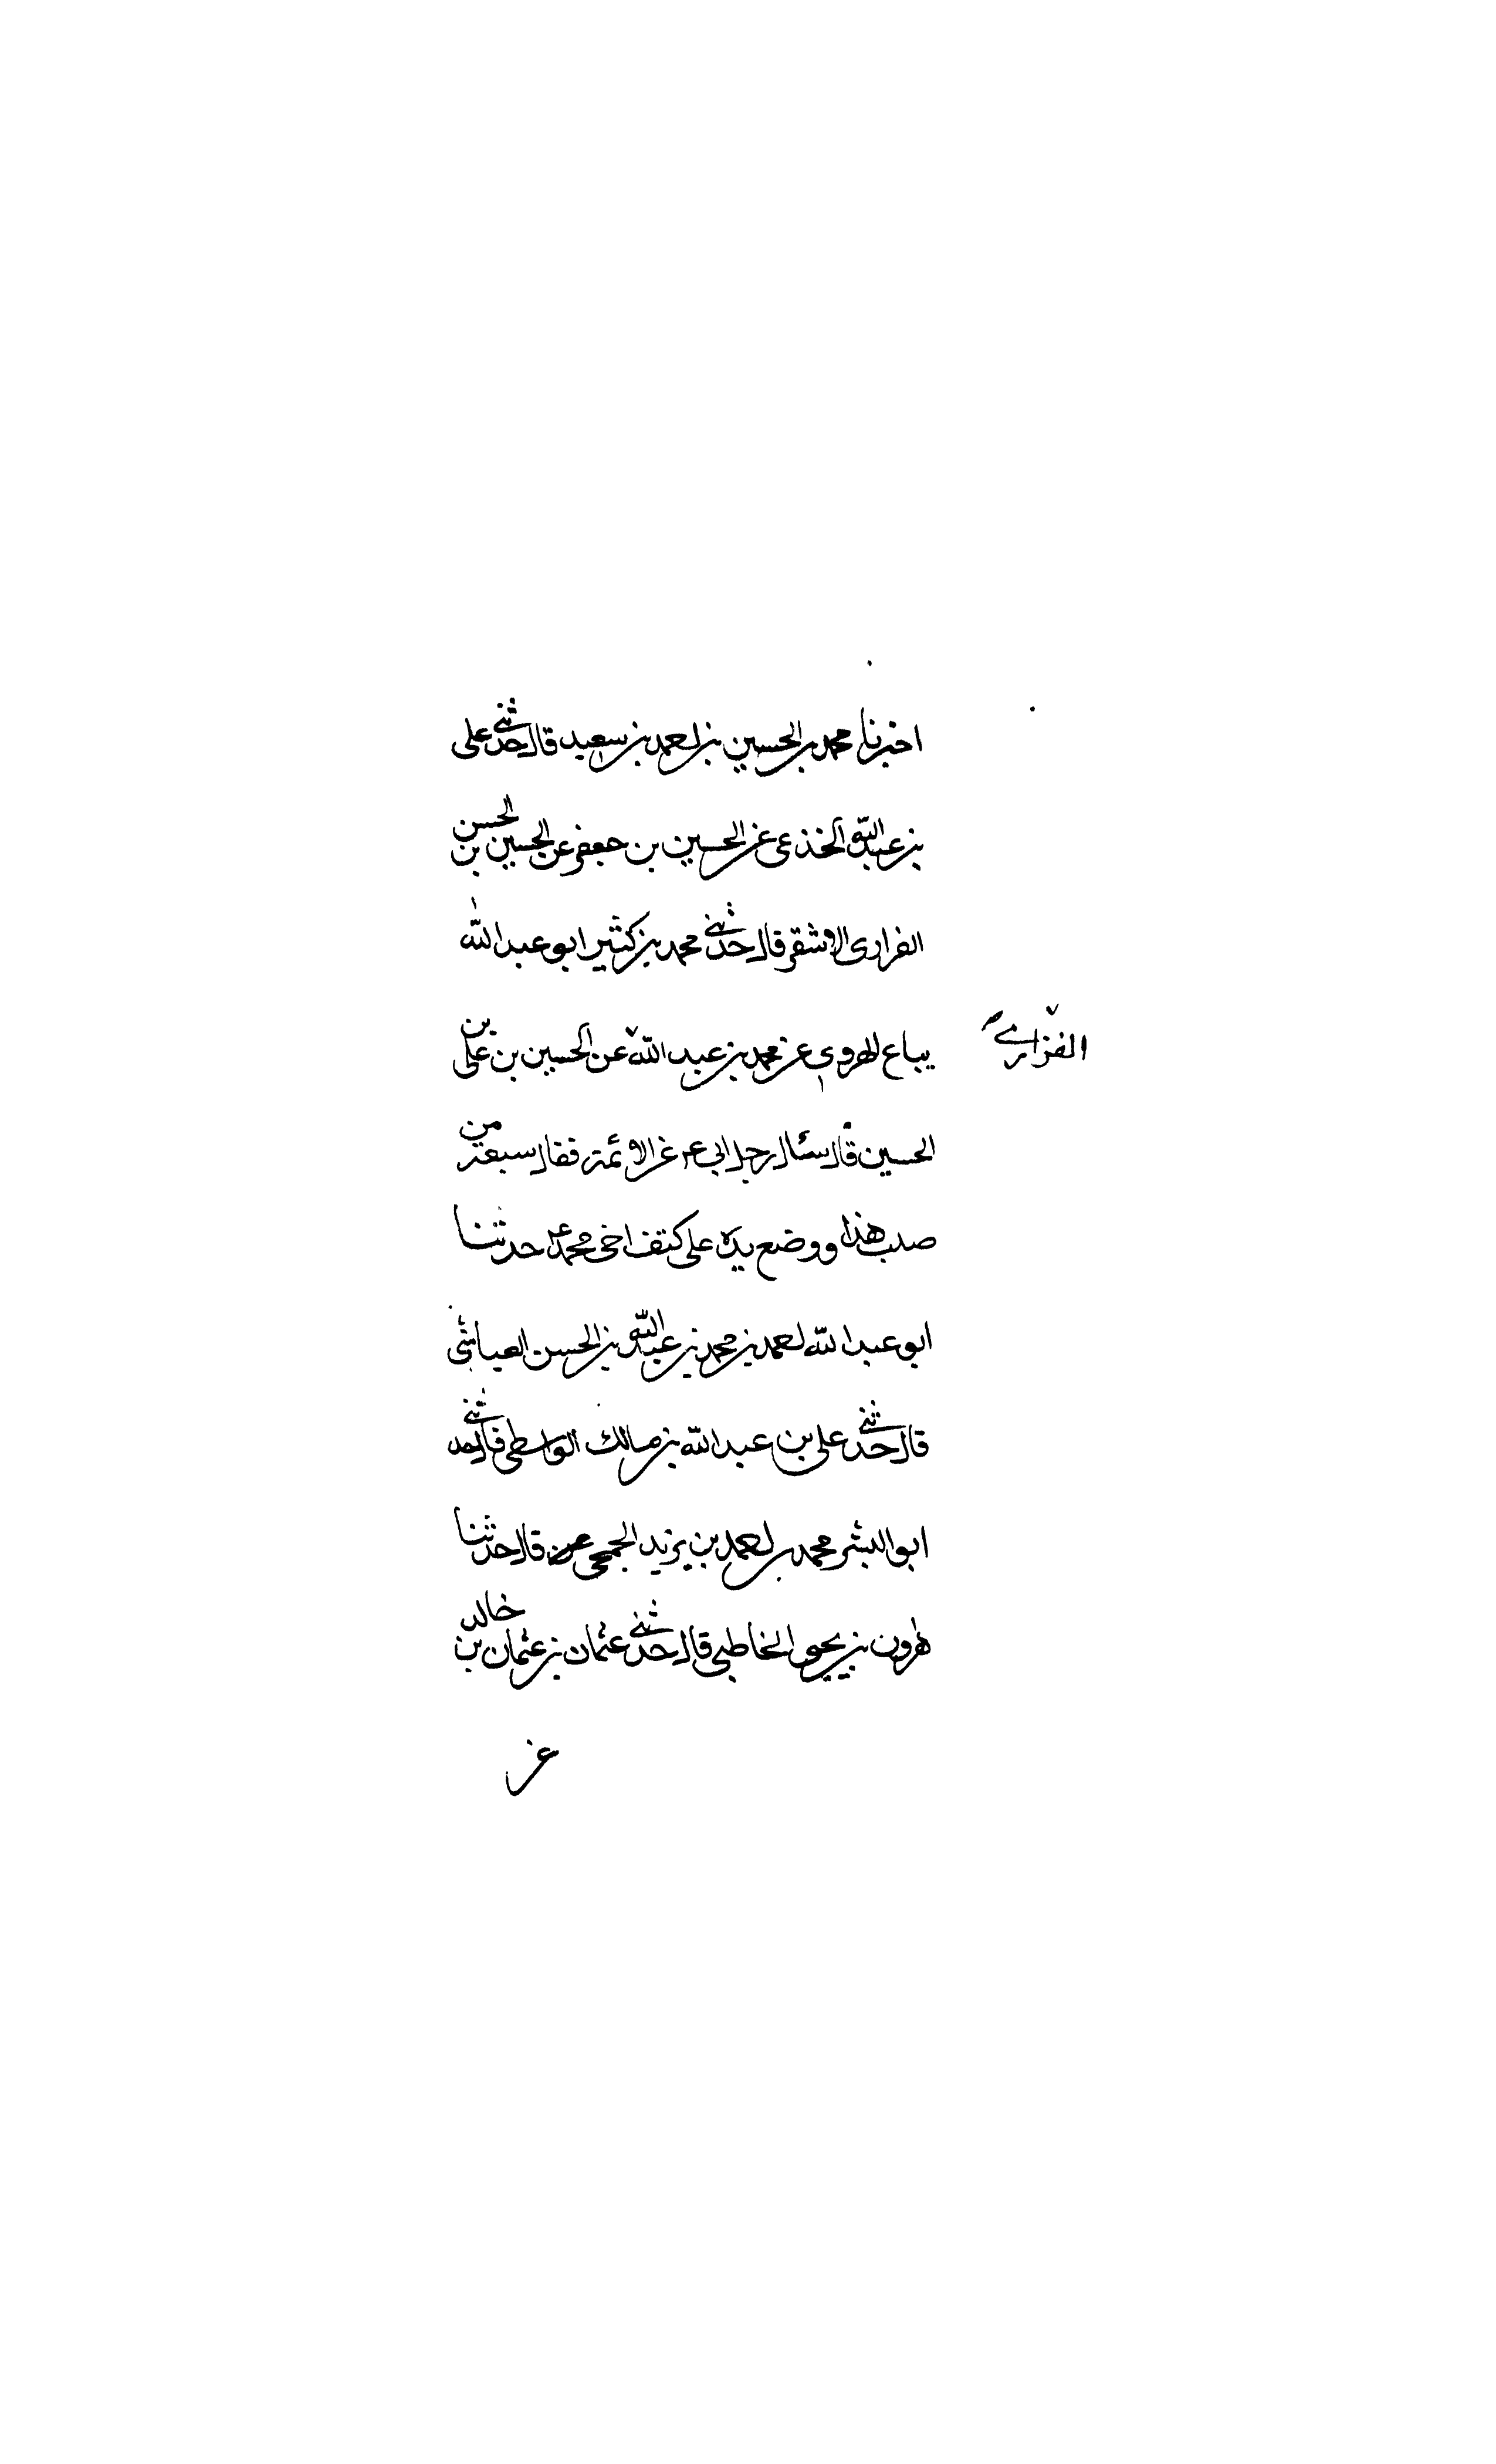 اخبرنا محمد بن الحسين بن احمد بن سعيد قال حدثني على
بن عبد الله الخذعى عن الحسين بن جعفر عن الحسين بن الحسن
الفرارى الاشقر قال حدثني محمد بن كثير ابو عبد الله
بياع الهروى عن محمد بن عبد الله عن الحسين بن على بن
الفزارى
الحسين قال سئال رجل ابى عم عن الائمة فقال سبعة من
صلب هذا ووضع يده على كتف اخى محمد عم حدثنا
ابو عبد الله احمد بن محمد بن عبد الله بن الحسن العياشى
قال حدثني على بن عبد الله بن مالك الواسطى قال حدثني
ابو البشر محمد بن احمد بن يزيد الجمحى قال حدثنا
هرون بن يحيى الخاطبى قال حدثني عثمان بن عثمان بن خالد
عن